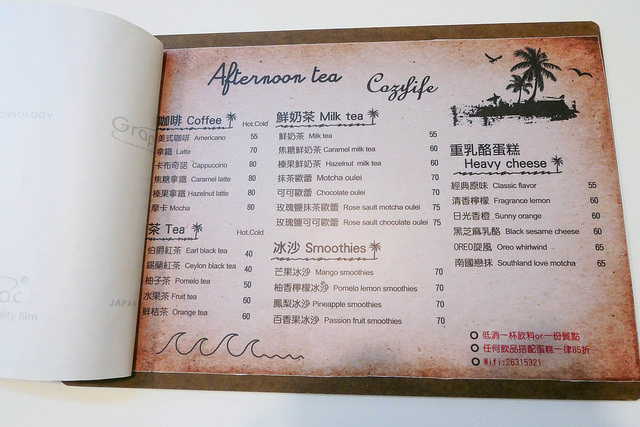 Afternoon tea
Cozylife
咖啡 Coffee Hot.Cold
美式咖啡 Americano 55
拿鐵 Latte 70
卡布奇諾 Cappuccino 80
焦糖拿鐵 Caramel latte 80
榛果拿鐵 Hazelnut latte 80
摩卡 Mocha 80
茶 Tea Hot.Cold
伯爵紅茶 Earl black tea 40
錫蘭紅茶 Ceylon black tea 40
柚子茶 Pomelo tea 50
水果茶 Fruit tea 60
鮮桔茶 Orange tea 60
鮮奶茶 Milk tea
鮮奶茶 Milk tea 55
焦糖鮮奶茶 Caramel milk tea 60
榛果鮮奶茶 Hazelnut milk tea 60
抹茶歐蕾 Motcha oulei 70
可可歐蕾 Chocolate oulei 70
玫瑰鹽抹茶歐蕾 Rose sault motcha oulei 75
玫瑰鹽可可歐蕾 Rose sault chocolate oulei 75
冰沙 Smoothies
芒果冰沙 Mango smoothies 70
柚香檸檬冰沙 Pomelo lemon smoothies 70
鳳梨冰沙 Pineapple smoothies 70
百香果冰沙 Passion fruit smoothies 70
重乳酪蛋糕
Heavy cheese
經典原味 Classic flavor 55
清香檸檬 Fragrance lemon 60
日光香橙 Sunny orange 60
黑芝麻乳酪 Black sesame cheese 60
OREO旋風 Oreo whirlwind 65
南國戀抹 Southland love motcha 65
低消一杯飲料or一份餐點
任何飲品搭配蛋糕一律85折
Wifi:26315321
Grap
JAPA
lity film